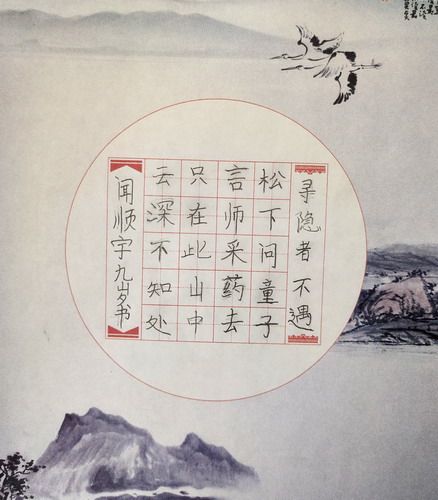 寻隐者不遇
松下问童子
言师采药去
只在此山中
云深不知处
闻顺宇九岁书